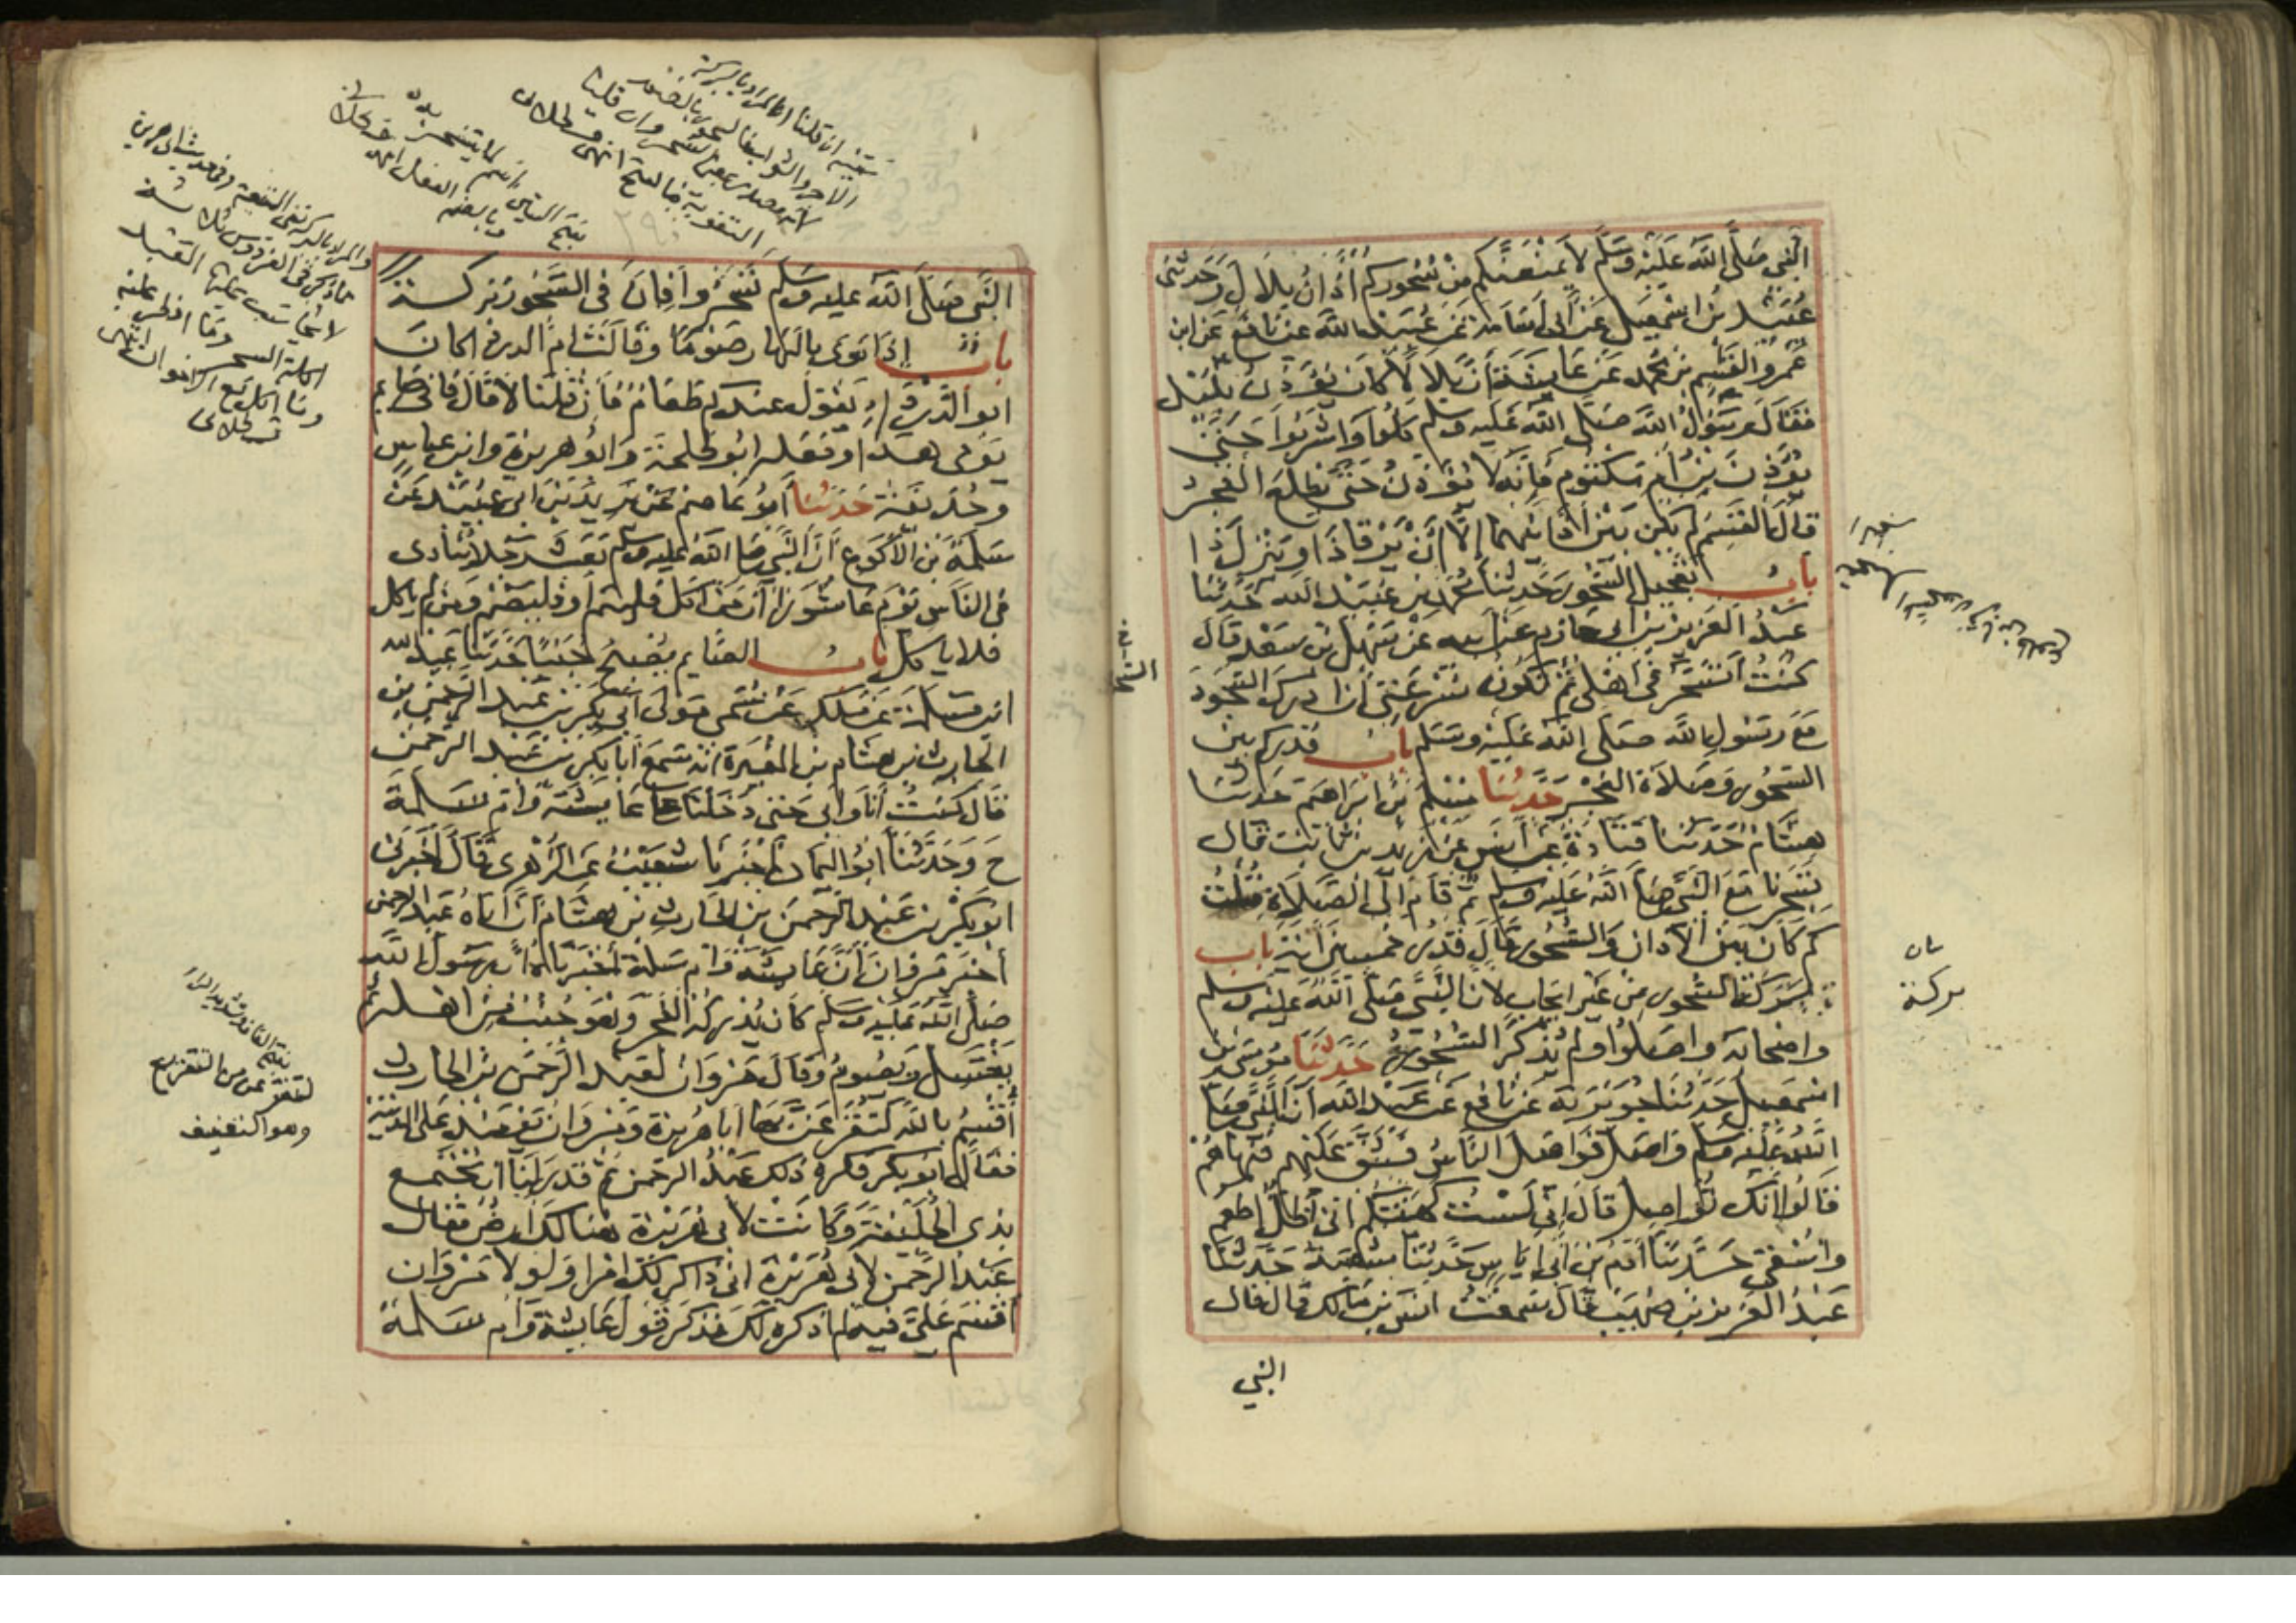 النبي صلى الله عليه وسلم لا يمنعنكم من سحوركم أذان بلال وحدثني
عبيد بن اسمعيل عن أبي أسامة عن عبيد الله عن نافع عن ابن
عمر والقسم بن محمد عن عايشة أن بلالا كان يؤذن بليل
فقال رسول الله صلى الله عليه وسلم كلوا واشربوا حتى
يؤذن بن أم مكتوم فإنه لا يؤذن حتى يطلع الفجر
قال القسم لم يكن بين أذانهما إلا أن يرقا ذا وينزل ذا
باب تعجيل السحور حدثنا محمد بن عبيد الله حدثنا
عبد العزيز بن ابي حازم عن ابيه عن سهل بن سعد قال
كنت أتسحر في اهلي ثم تكون سرعتي أن ادرك السحور
مع رسول الله صلى الله عليه وسلم باب قدركم بين
السحور وصلاة الفجر حدثنا مسلم بن ابراهيم حدثنا
هشام حدثنا قتادة عن أنس عن زيد بن ثابت قال
تسحرنا مع النبي صلى الله عليه وسلم ثم قام الى الصلاة قلت
كم كان بين الأذان والسحور قال قدر خمسين آية باب
بركة السحور من غير ايجاب لان النبي صلى الله عليه وسلم
واصحابه واصلوا ولم يذكر السحور حدثنا موسى بن
اسمعيل حدثنا جويرية عن نافع عن عبد الله أن النبي صلى
الله عليه وسلم واصل فواصل الناس فشق عليهم فنهاهم
قالوا انك تواصل قال إني لست كهيئتكم اني أظل اطعم
واسقى حدثنا آدم بن أبي اياس حدثنا شعبة حدثنا
عبد العزيز بن صهيب قال سمعت انس بن مالك قال قال
النبي
بركة
النبي صلى الله عليه وسلم تسحروا فإن في السحور بركة
باب إذا نوى بالنهار صوما وقالت ام الدردا كان
ابو الدردا يقول عندكم طعام فإن قلنا لا قال فاني صايم
يومي هذا وفعله ابو طلحة وابو هريرة وابن عباس
وحذيفة حدثنا أبو عاصم عن يزيد بن ابي عبيد عن
سلمة بن الأكوع أن النبي صلى الله عليه وسلم بعث رجلا ينادى
في الناس يوم عاشورا أن من اكل فليتم أو فليصم ومن لم ياكل
فلا ياكل باب الصايم يصبح جنبا حدثنا عبد الله
ابن مسلمة عن ملك عن سمي مولى أبي بكر بن عبد الرحمن بن
الحارث بن هشام بن المغيرة انه سمع أبا بكر بن عبد الرحمن
قال كنت أنا وابي حتى دخلنا على عايشة وام سلمة
ح وحدثنا ابو اليمان اخبرنا شعيب عن الزهري قال أخبرني
ابو بكر بن عبد الرحمن بن الحارث بن هشام أن اباه عبد الرحمن
أخبر مروان أن عايشة وام سلمة أخبرتاه أن رسول الله
صلى الله عليه وسلم كان يدركه الفجر وهو جنب من اهله ثم
يغتسل ويصوم وقال مروان لعبد الرحمن بن الحارث
أقسم بالله لتفزعن بها أبا هريرة ومروان يومئذ على المدينة
فقال ابو بكر فكره ذلك عبد الرحمن ثم قدر لنا أن نجتمع
بذي الحليفة وكانت لابي هريرة هنالك أرض فقال
عبد الرحمن لابي هريرة اني ذاكر لك امرا ولولا مروان
أقسم علي فيه لم اذكره لك فذكر قول عايشة وام سلمة
وهو التخفيف